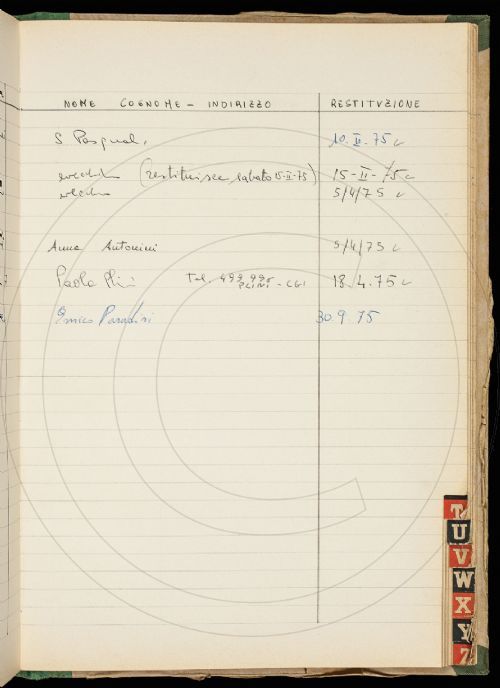 NOME COGNOME - INDIRIZZO RESTITUZIONE
S Pasquali 10. II. 75
(restituisce sabato 15-II-75) 15-II-75
5/4/75
Anna Antonini 5/4/75
Paola Plini Tel. 18.4.75
PLINI - CGI
Enrico 30.9.75
T
U
V
W
X
Y
Z